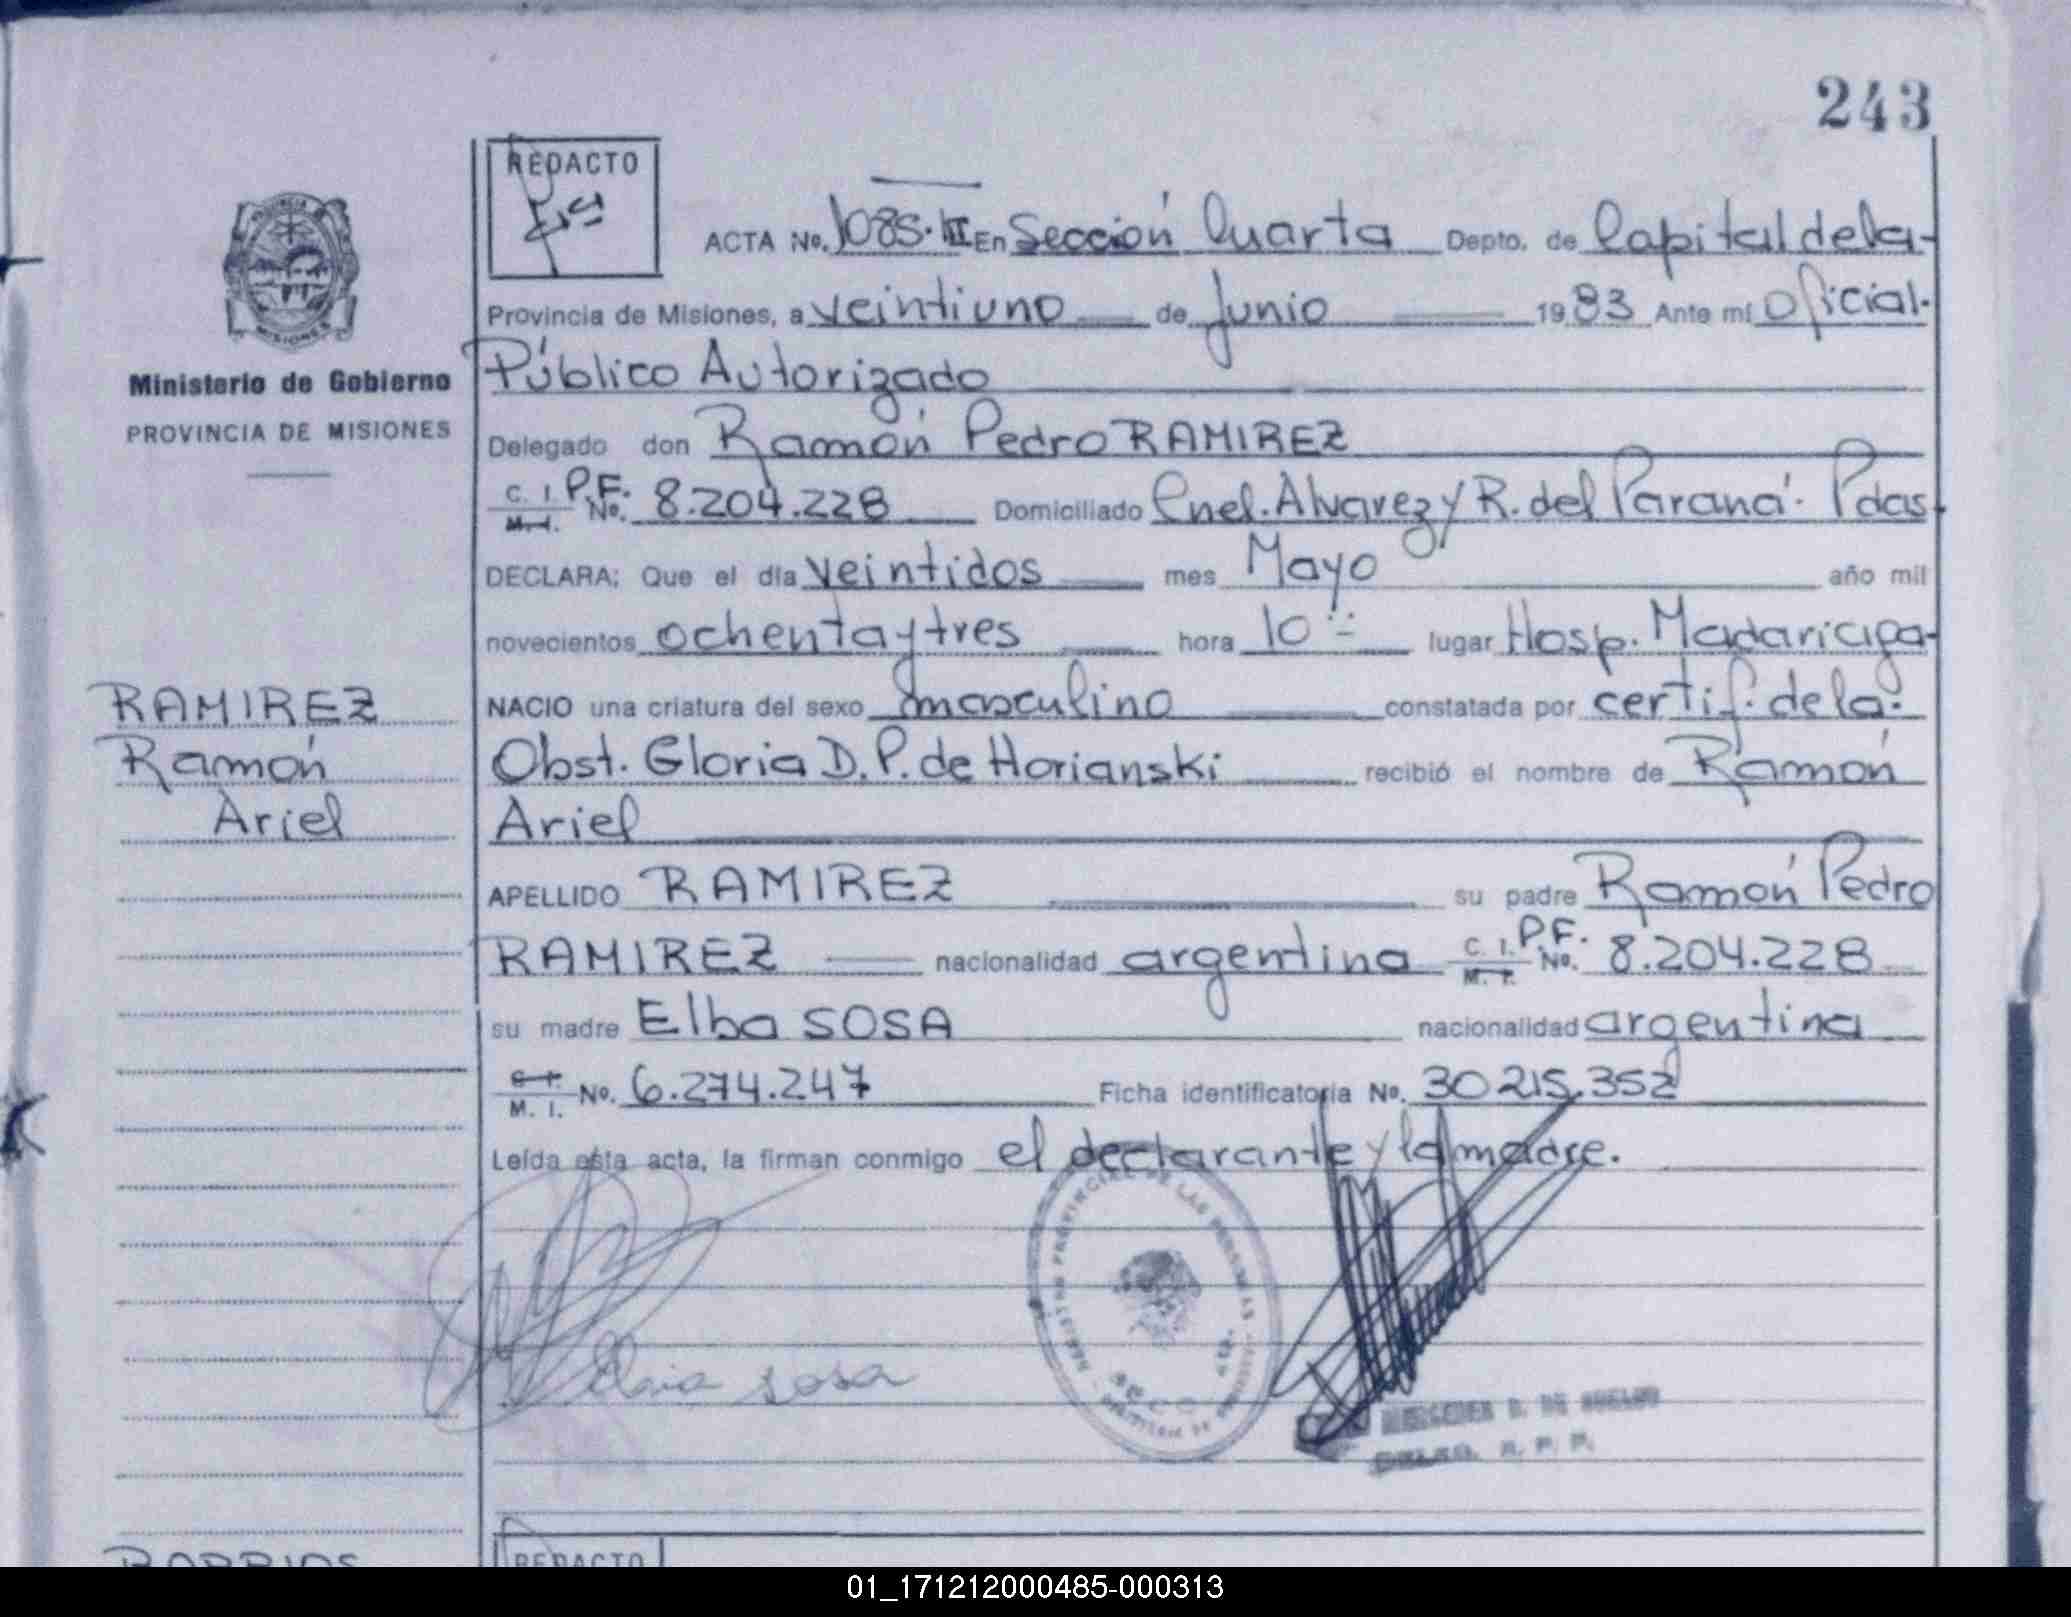 243
REDACTO
ACTA No. 1085·III En Sección Cuarta Depto. de Capital de la-
Provincia de Misiones, a veintiuno de Junio 1983 Ante mí Oficial.
Público Autorizado
Ministerio de Gobierno
PROVINCIA DE MISIONES
Delegado don Ramón Pedro RAMIREZ
C. I. P.F.
M. I. No. 8.204.228 Domiciliado Cnel. Alvarez y R. del Paraná. Pdas
DECLARA: Que el día veintidos mes Mayo año mil
novecientos ochenta y tres hora 10 lugar Hosp. Madariaga-
NACIO una criatura del sexo masculino constatada por certif. de la.
Obst. Gloria D. P. de Horianski recibió el nombre de Ramón
Ariel
RAMIREZ
Ramón
Ariel
APELLIDO RAMIREZ su padre Ramón Pedro
RAMIREZ nacionalidad argentina C. I. P.F.
M. I. No. 8.204.228
su madre Elba SOSA nacionalidad argentina
C. I.
M. I. No. 6.274.247 Ficha identificatoria No. 30215.352
Leída esta acta, la firman conmigo el declarante y la madre.
REGISTRO PROVINCIAL DE LAS PERSONAS
sosa
REDACTO
01_171212000485-000313